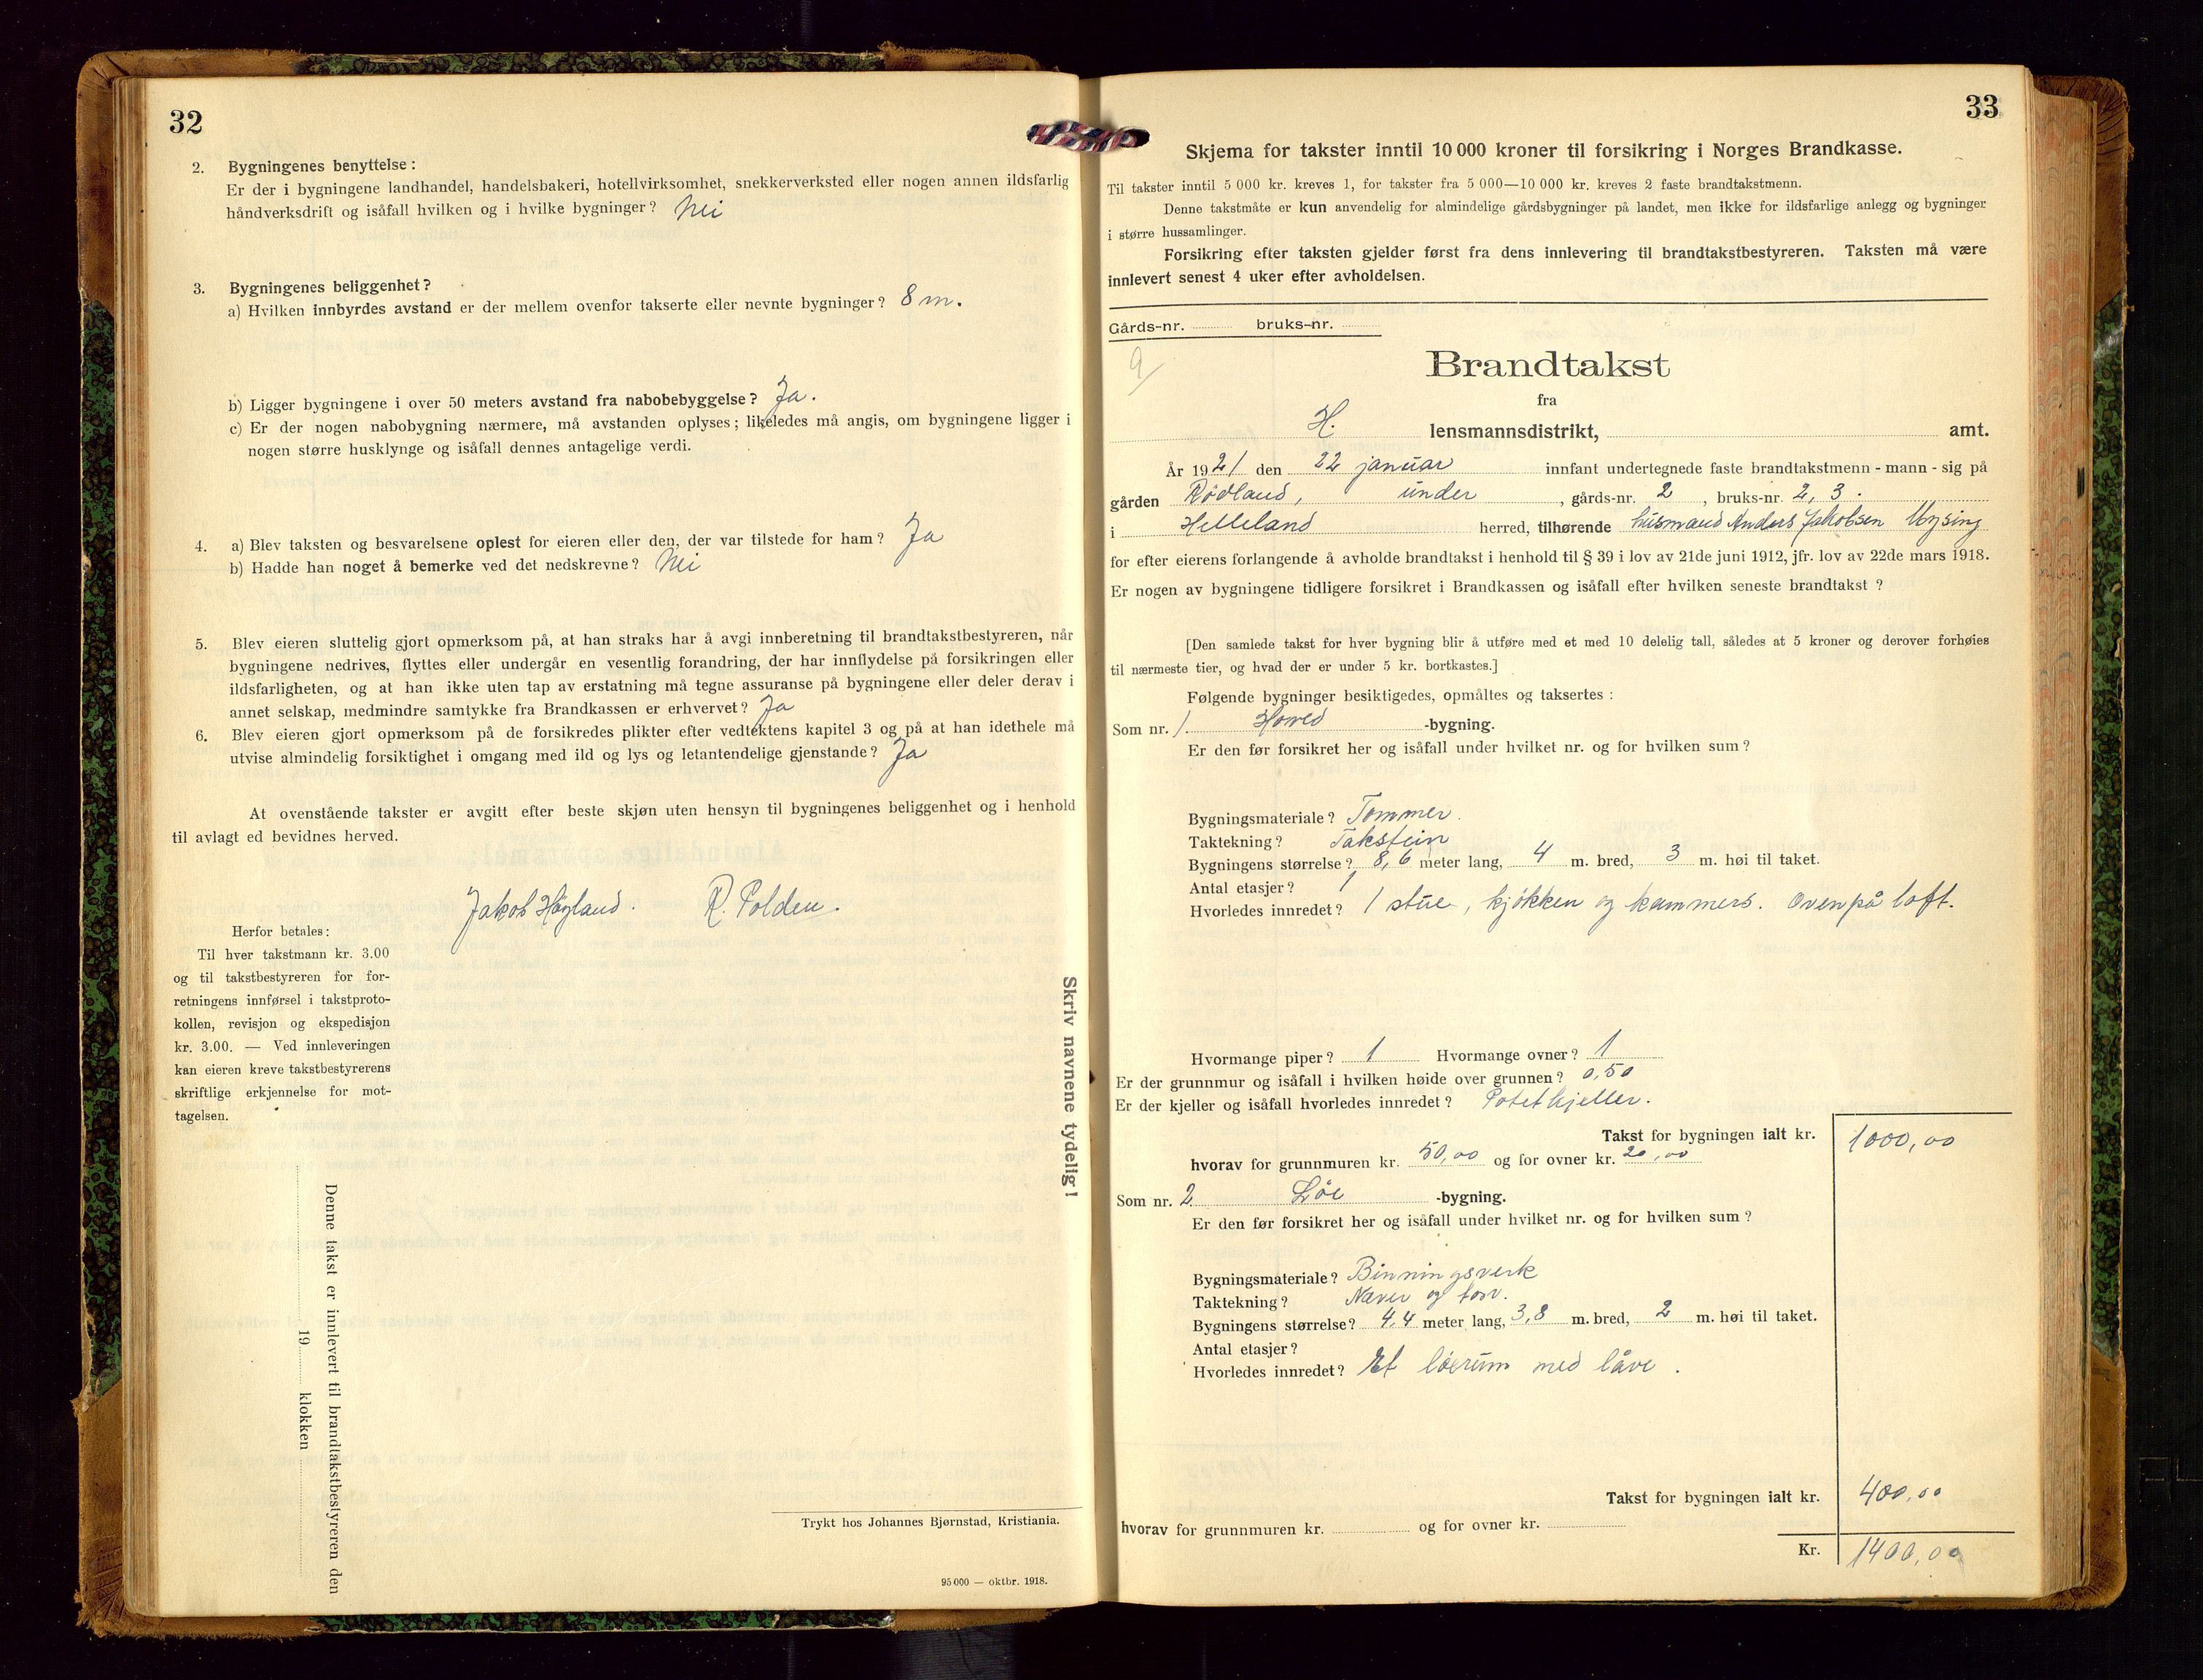 32
2. Bygningenes benyttelse:
Er der i bygningene landhandel, handelsbakeri, hotellvirksomhet, snekkerverksted eller nogen annen ildsfarlig
håndverksdrift og isåfall hvilken og i hvilke bygninger? Nei
3. Bygningenes beliggenhet?
a) Hvilken innbyrdes avstand er der mellem ovenfor takserte eller nevnte bygninger? 8 m.
b) Ligger bygningene i over 50 meters avstand fra nabobebyggelse? Ja.
c) Er der nogen nabobygning nærmere, må avstanden oplyses; likeledes må angis, om bygningene ligger i
nogen større husklynge og isåfall dennes antagelige verdi.
4. a) Blev taksten og besvarelsene oplest for eieren eller den, der var tilstede for ham? Ja
b) Hadde han noget å bemerke ved det nedskrevne? Nei
5. Blev eieren sluttelig gjort opmerksom på, at han straks har å avgi innberetning til brandtakstbestyreren, når
bygningene nedrives, flyttes eller undergår en vesentlig forandring, der har innflydelse på forsikringen eller
ildsfarligheten, og at han ikke uten tap av erstatning må tegne assuranse på bygningene eller deler derav i
annet selskap, medmindre samtykke fra Brandkassen er erhvervet? Ja
6. Blev eieren gjort opmerksom på de forsikredes plikter efter vedtektens kapitel 3 og på at han idethele må
utvise almindelig forsiktighet i omgang med ild og lys og letantendelige gjenstande? Ja
At ovenstående takster er avgitt efter beste skjøn uten hensyn til bygningenes beliggenhet og i henhold
til avlagt ed bevidnes herved.
Jakob Høgland. R. Polden.
Herfor betales:
Til hver takstmann kr. 3.00
og til takstbestyreren for for-
retningens innførsel i takstproto-
kollen, revisjon og ekspedisjon
kr. 3.00. — Ved innleveringen
kan eieren kreve takstbestyrerens
skriftlige erkjennelse for mot-
tagelsen.
Skriv navnene tydelig!
Denne takst er innlevert til brandtakstbestyreren den
19 klokken
Trykt hos Johannes Bjørnstad, Kristiania.
95 000 — oktbr. 1918.
33
Skjema for takster inntil 10 000 kroner til forsikring i Norges Brandkasse.
Til takster inntil 5 000 kr. kreves 1, for takster fra 5 000—10 000 kr. kreves 2 faste brandtakstmenn.
Denne takstmåte er kun anvendelig for almindelige gårdsbygninger på landet, men ikke for ildsfarlige anlegg og bygninger
i større hussamlinger.
Forsikring efter taksten gjelder først fra dens innlevering til brandtakstbestyreren. Taksten må være
innlevert senest 4 uker efter avholdelsen.
Gårds-nr. bruks-nr.
9/
Brandtakst
fra
H. lensmannsdistrikt, amt.
År 1921 den 22 januar innfant undertegnede faste brandtakstmenn - mann - sig på
gården Rødland, under , gårds-nr. 2 , bruks-nr. 2, 3.
i Helleland herred, tilhørende husmand Anders Jakobsen Mysing
for efter eierens forlangende å avholde brandtakst i henhold til § 39 i lov av 21de juni 1912, jfr. lov av 22de mars 1918.
Er nogen av bygningene tidligere forsikret i Brandkassen og isåfall efter hvilken seneste brandtakst ?
[Den samlede takst for hver bygning blir å utføre med et med 10 delelig tall, således at 5 kroner og derover forhøies
til nærmeste tier, og hvad der er under 5 kr. bortkastes.]
Følgende bygninger besiktigedes, opmåltes og taksertes :
Som nr. 1. Hoved -bygning.
Er den før forsikret her og isåfall under hvilket nr. og for hvilken sum ?
Bygningsmateriale? Tømmer.
Taktekning? Takstein
Bygningens størrelse? 8,6 meter lang, 4 m. bred, 3 m. høi til taket.
Antal etasjer? 1
Hvorledes innredet? 1 stue, kjøkken og kammers. Ovenpå loft.
Hvormange piper? 1 Hvormange ovner? 1
Er der grunnmur og isåfall i hvilken høide over grunnen? 0,50
Er der kjeller og isåfall hvorledes innredet? Potetkjeller.
Takst for bygningen ialt kr. 1000,00
hvorav for grunnmuren kr. 50,00 og for ovner kr. 20,00
Som nr. 2 Løe -bygning.
Er den før forsikret her og isåfall under hvilket nr. og for hvilken sum ?
Bygningsmateriale? Binningsverk
Taktekning? Næver og torv.
Bygningens størrelse? 4,4 meter lang, 3,8 m. bred, 2 m. høi til taket.
Antal etasjer?
Hvorledes innredet? Et løerum med låve.
Takst for bygningen ialt kr. 400,00
hvorav for grunnmuren kr. og for ovner kr.
Kr. 1400,00